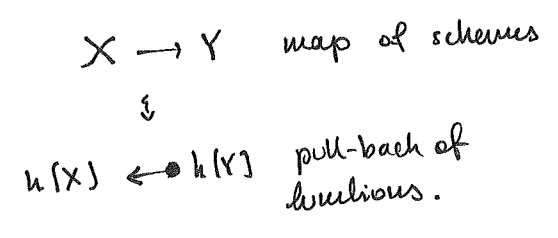 X → Y map of schemes
k[X] ← k[Y] pull-back of
functions.